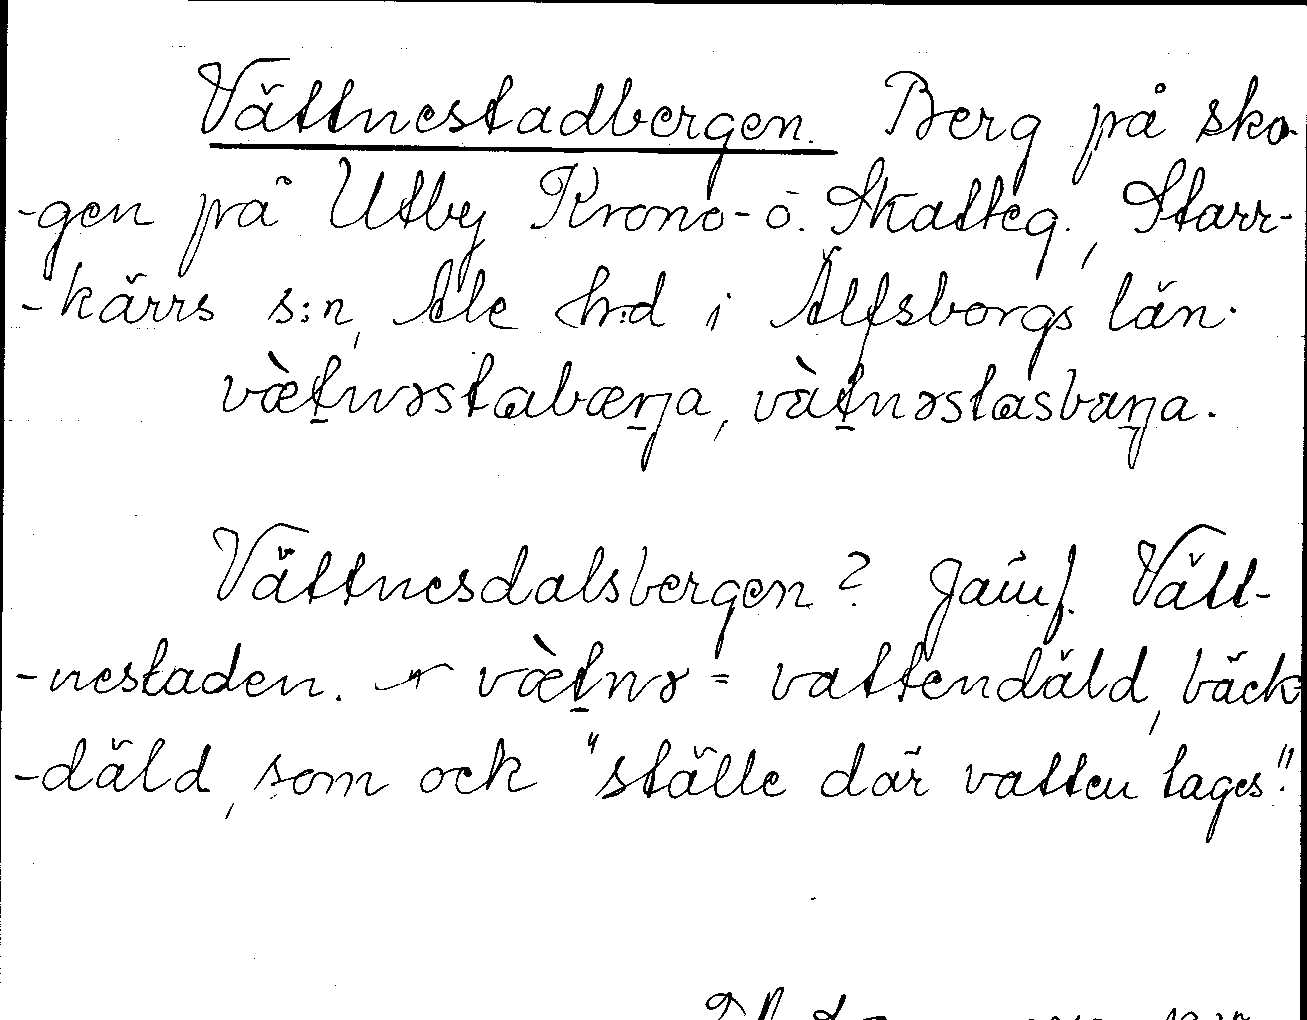 Vättnestadbergen. Berg på sko-
-gen på Utby Krono- o. Skatteg., Starr-
-kärrs s:n, Ale h:d i Älfsborgs län.
væ̀t̲nəstabæṟŋa, væ̀t̲nəstasbæṟŋa.
Vättnesdalsbergen? Jämf. Vätt-
-nestaden. - væ̀t̲nə = vattendäld, bäck-
-däld, som ock "ställe där vatten tages".